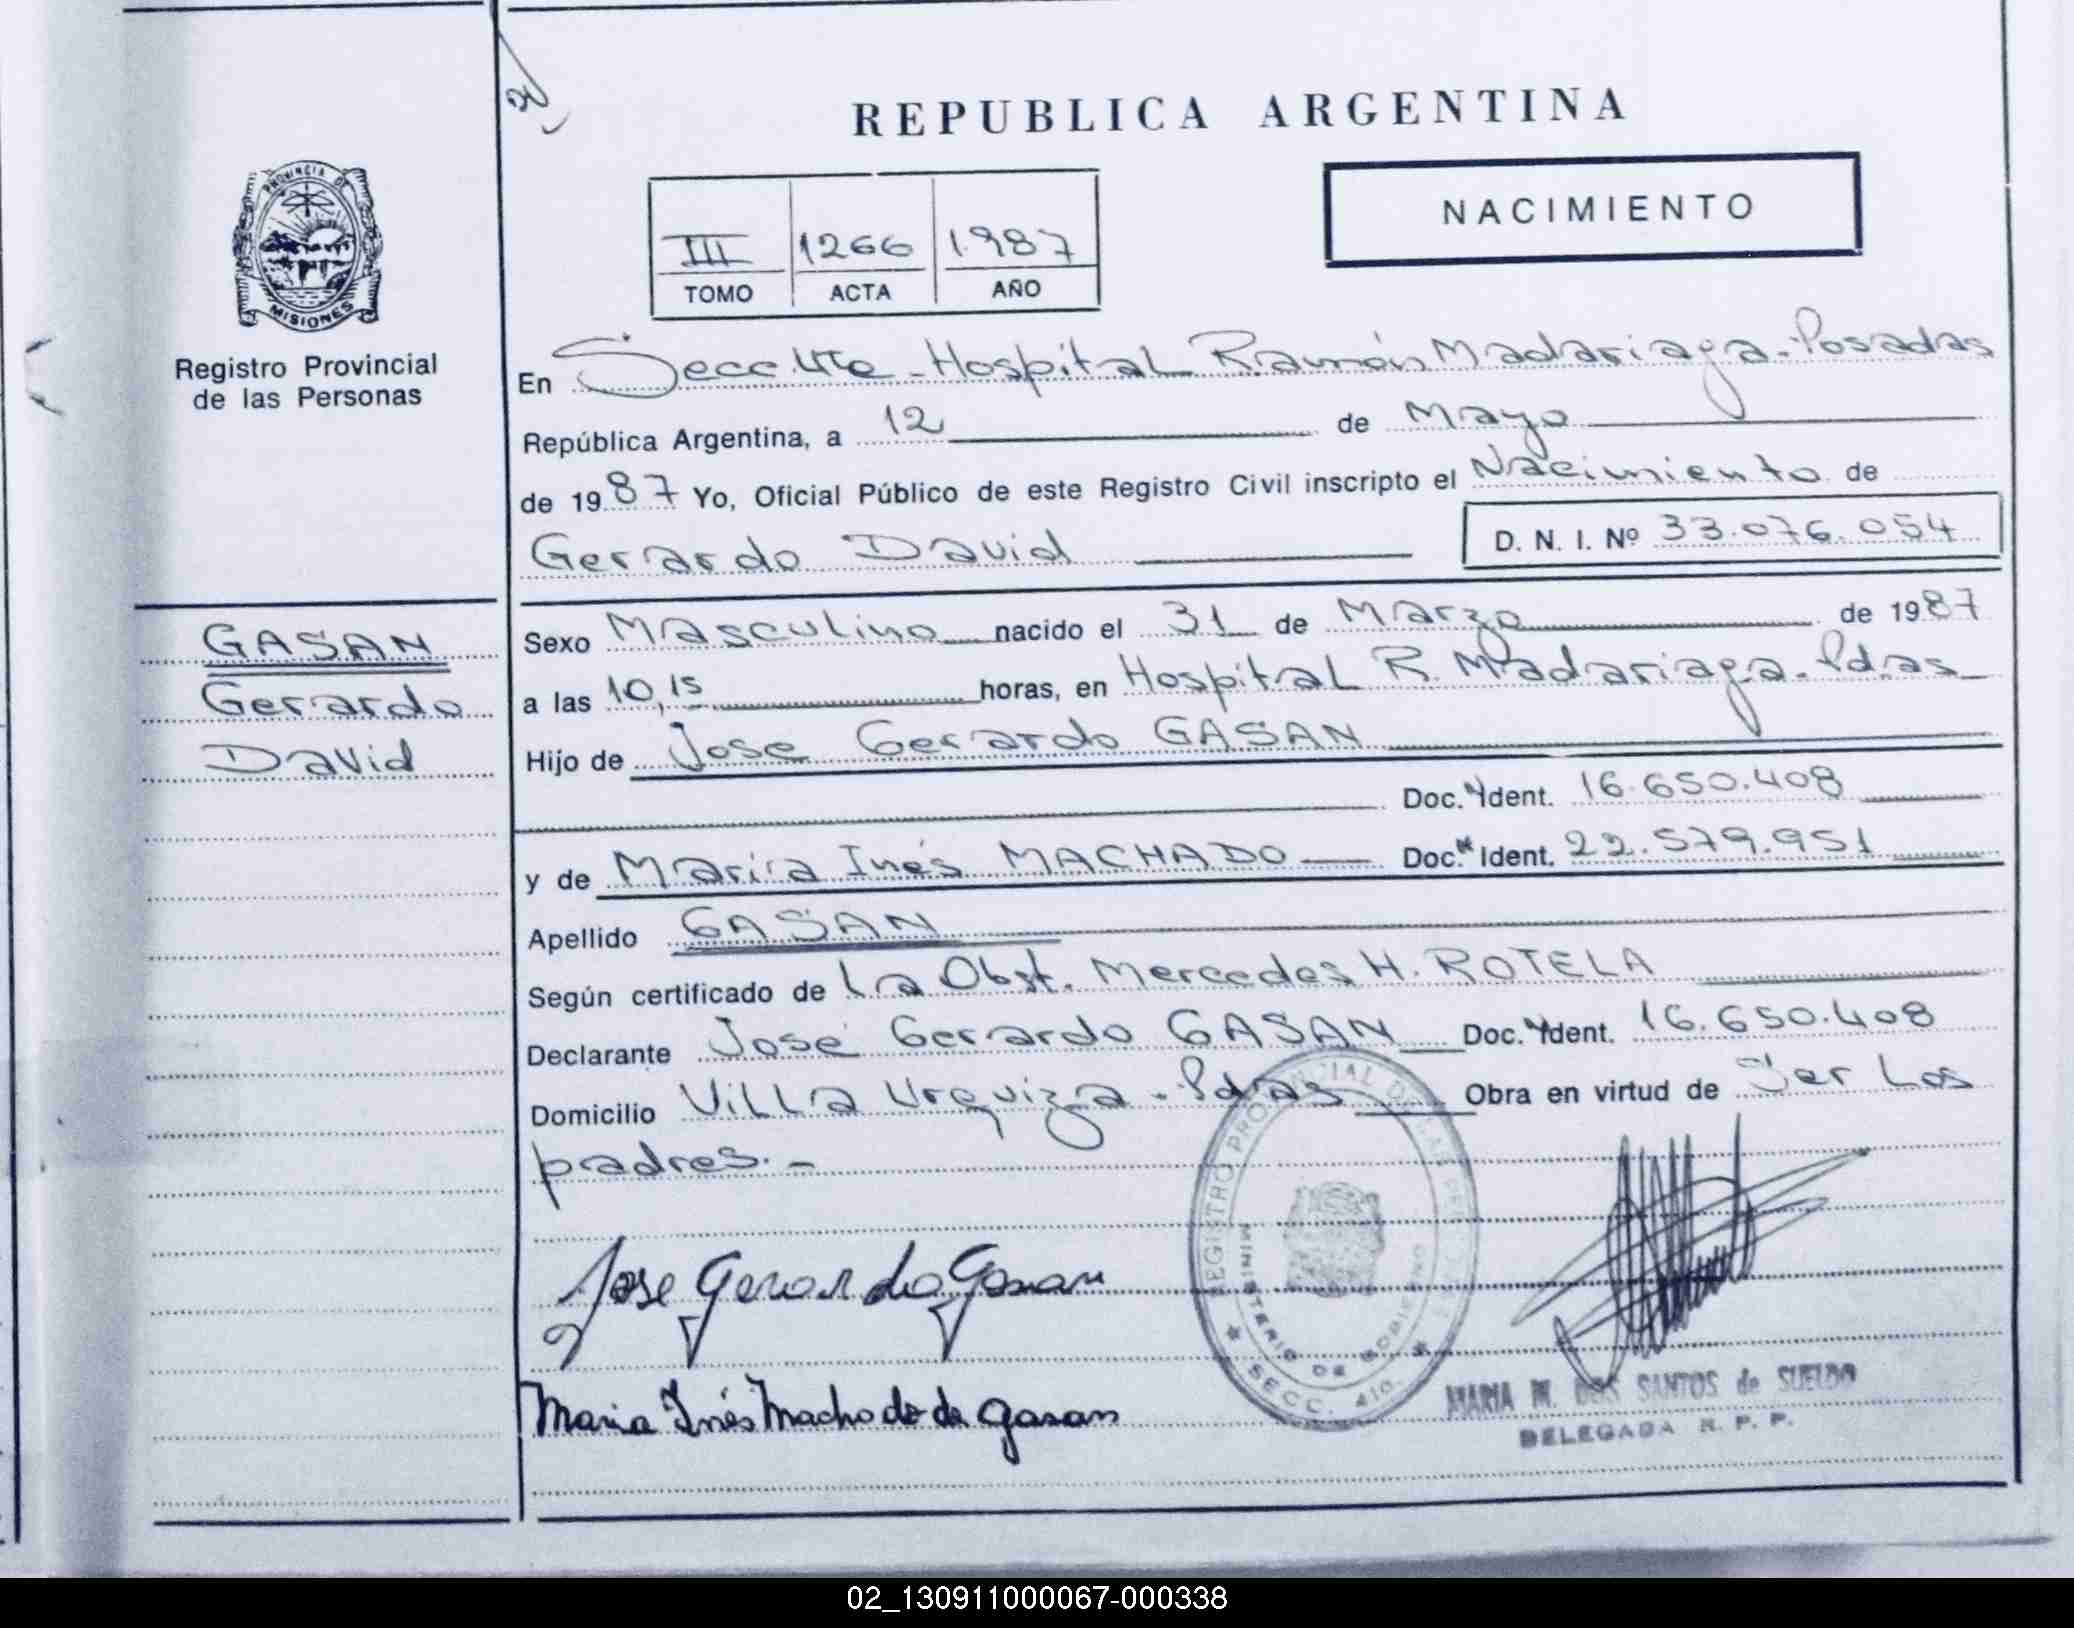 REPUBLICA ARGENTINA
NACIMIENTO
III 1266 1987
TOMO ACTA AÑO
PROVINCIA DE
MISIONES
Registro Provincial
de las Personas
GASAN
Gerardo
David
En Secc. 4ta - Hospital Ramón Madariaga - Posadas
República Argentina, a 12 de Mayo
de 1987 Yo, Oficial Público de este Registro Civil inscripto el Nacimiento de
Gerardo David D. N. I. Nº 33.076.054
Sexo Masculino nacido el 31 de Marzo de 1987
a las 10,15 horas, en Hospital R. Madariaga - Pdas
Hijo de Jose Gerardo GASAN
Doc. Ident. 16.650.408
y de María Inés MACHADO Doc. Ident. 22.579.951
Apellido GASAN
Según certificado de la Obst. Mercedes H. ROTELA
Declarante José Gerardo GASAN Doc. Ident. 16.650.408
Domicilio Villa Urquiza - Pdas Obra en virtud de Ser los
padres. -
Jose Gerardo Gasan
Maria Inés Machado de Gasan
REGISTRO PROVINCIAL DE LAS PER
MINISTERIO DE GOBIERNO
SECC. 4ta.
MARIA M. DOS SANTOS de SUELDO
DELEGADA R. P. P.
02_130911000067-000338